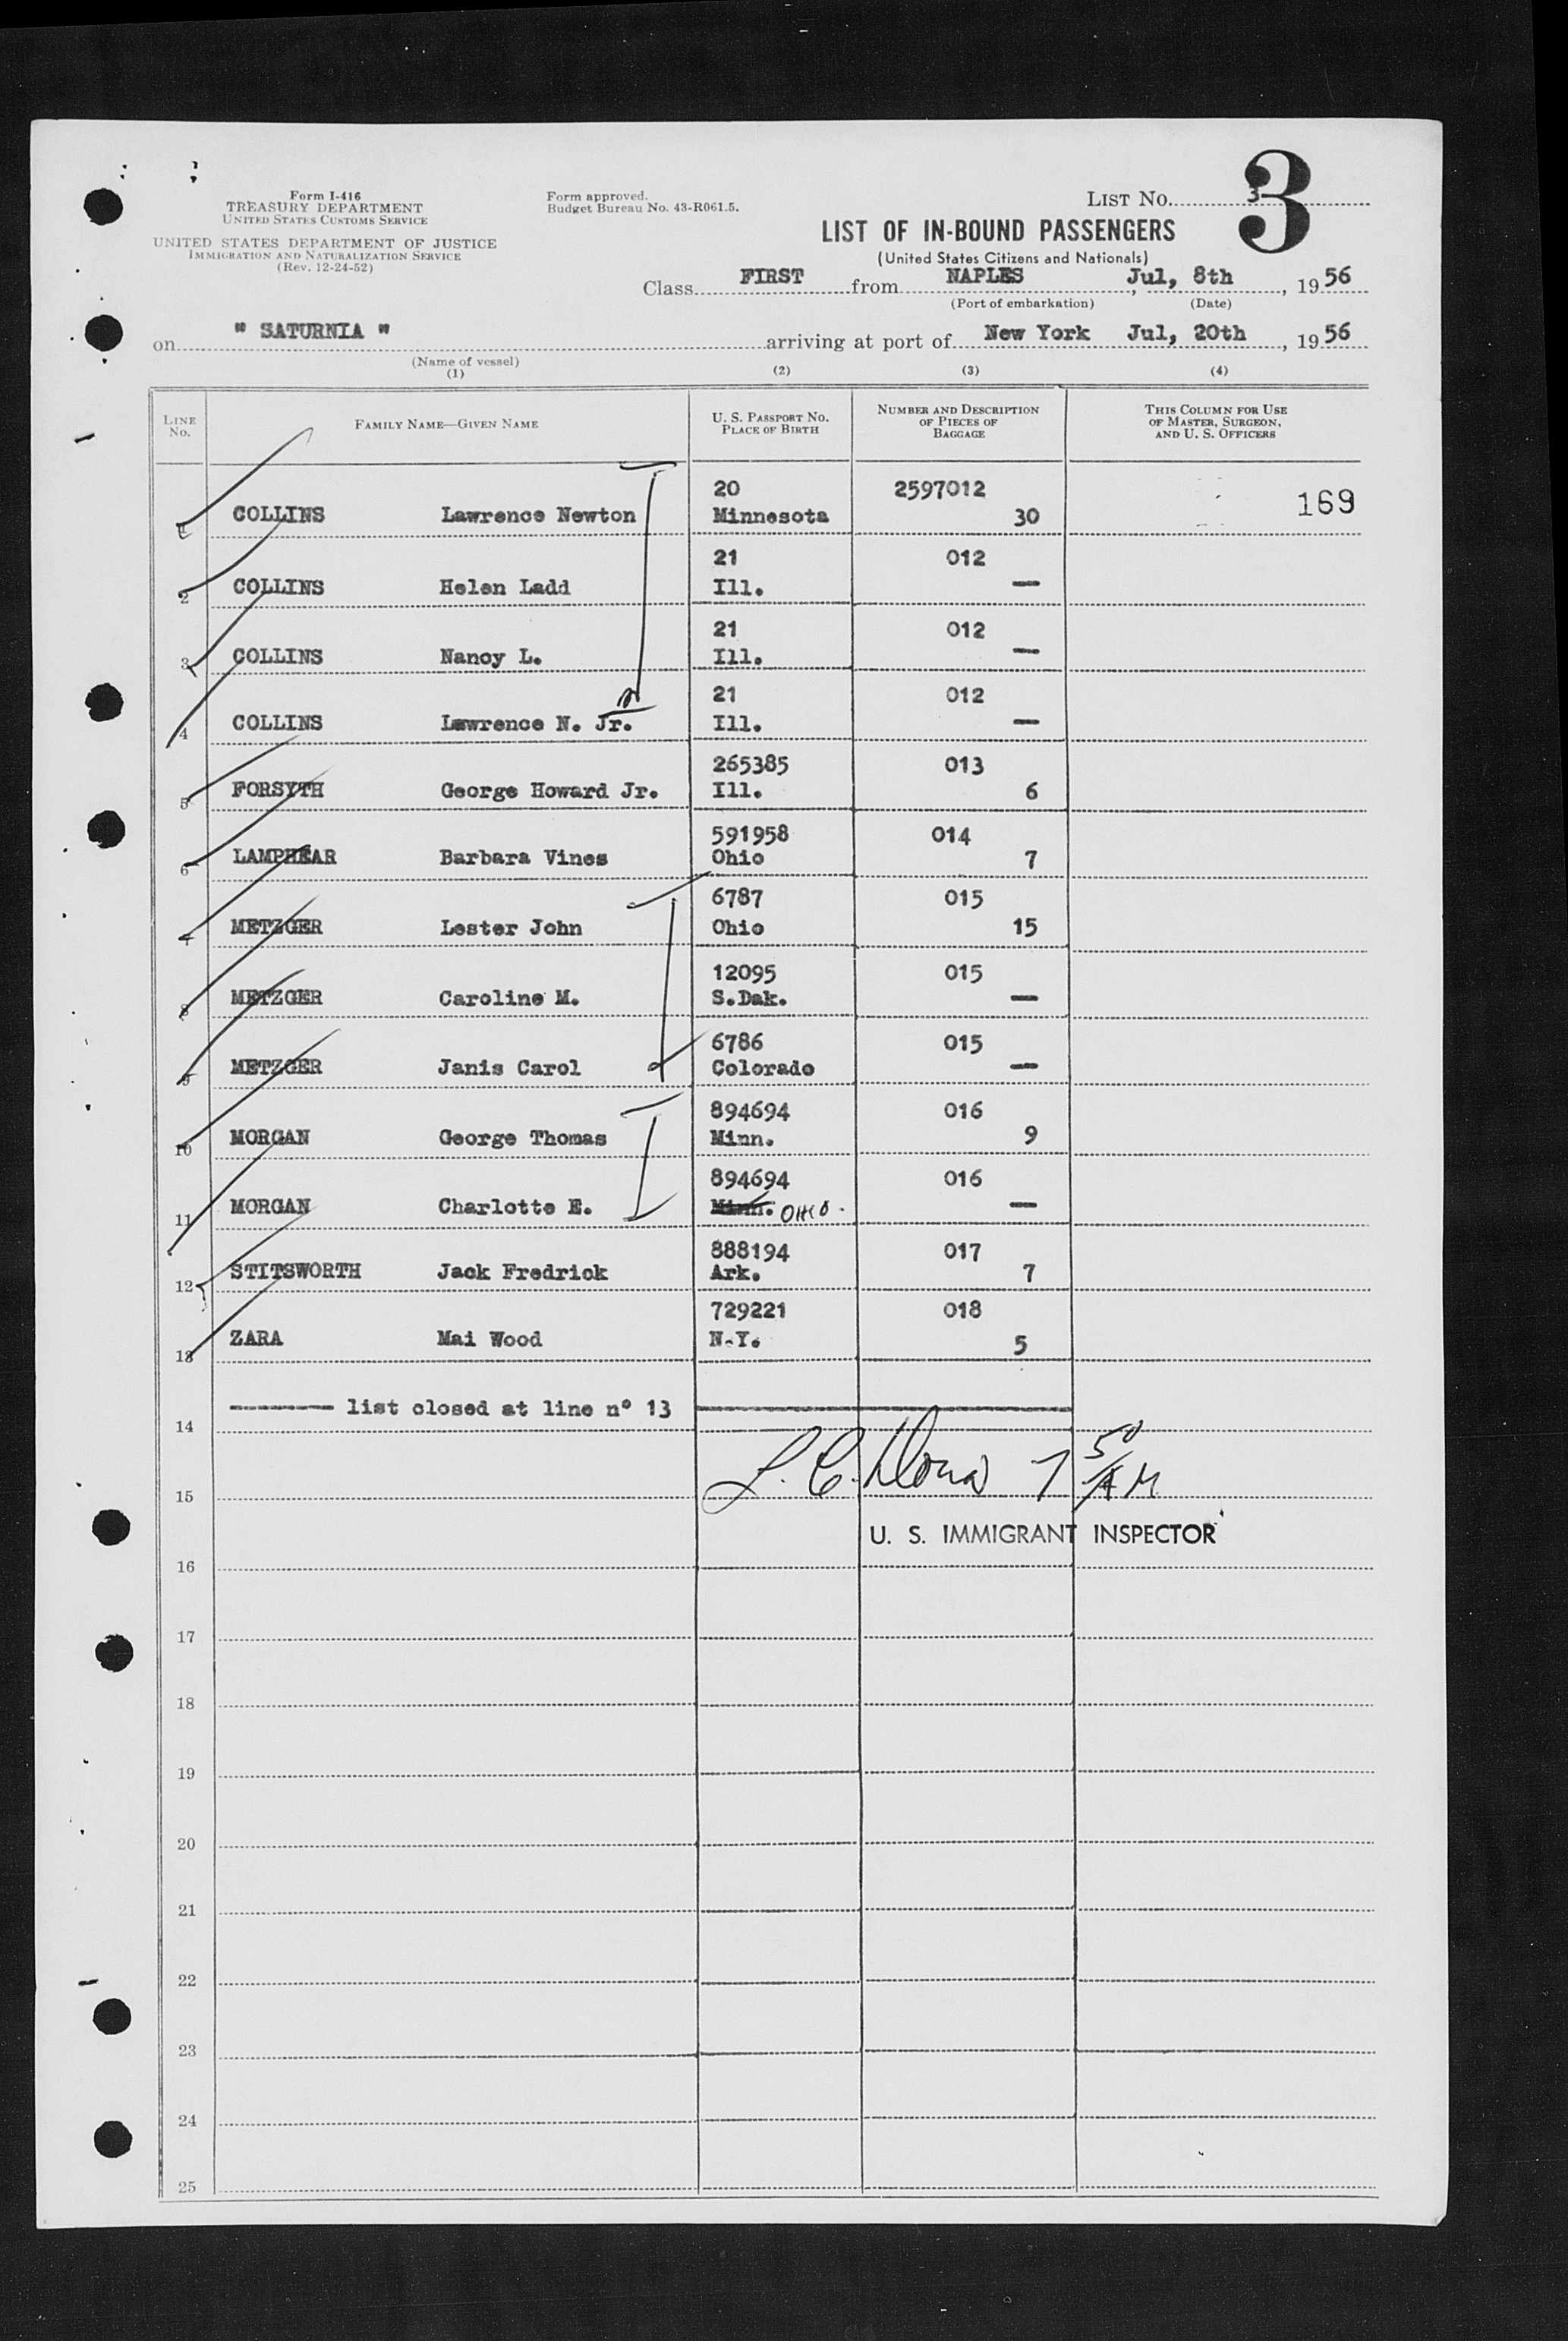 Form I-416
TREASURY DEPARTMENT
UNITED STATES CUSTOMS SERVICE
UNITED STATES DEPARTMENT OF JUSTICE
IMMIGRATION AND NATURALIZATION SERVICE
(Rev. 12-24-52)
Form approved.
Budget Bureau No. 43-R061.5.
LIST No. 3
3
LIST OF IN-BOUND PASSENGERS
(United States Citizens and Nationals)
Class FIRST from NAPLES, Jul, 8th, 1956
(Port of embarkation) (Date)
on " SATURNIA " arriving at port of New York Jul, 20th, 1956
(Name of vessel)
(1) (2) (3) (4)
LINE No. FAMILY NAME—GIVEN NAME U. S. PASSPORT No. PLACE OF BIRTH NUMBER AND DESCRIPTION OF PIECES OF BAGGAGE THIS COLUMN FOR USE OF MASTER, SURGEON, AND U. S. OFFICERS
20 2597012 169
1 COLLINS Lawrence Newton Minnesota 30
21 012
2 COLLINS Helen Ladd Ill. —
21 012
3 COLLINS Nancy L. Ill. —
21 012
4 COLLINS Lawrence N. Jr. Ill. —
265385 013
5 FORSYTH George Howard Jr. Ill. 6
591958 014
6 LAMPHEAR Barbara Vines Ohio 7
6787 015
7 METZGER Lester John Ohio 15
12095 015
8 METZGER Caroline M. S.Dak. —
6786 015
9 METZGER Janis Carol Colorado —
894694 016
10 MORGAN George Thomas Minn. 9
894694 016
11 MORGAN Charlotte E. Minn. OHIO. —
888194 017
12 STITSWORTH Jack Fredrick Ark. 7
729221 018
13 ZARA Mai Wood N.Y. 5
14 ——— list closed at line nº 13
15 L. C. 7 50 AM
U. S. IMMIGRANT INSPECTOR
16
17
18
19
20
21
22
23
24
25